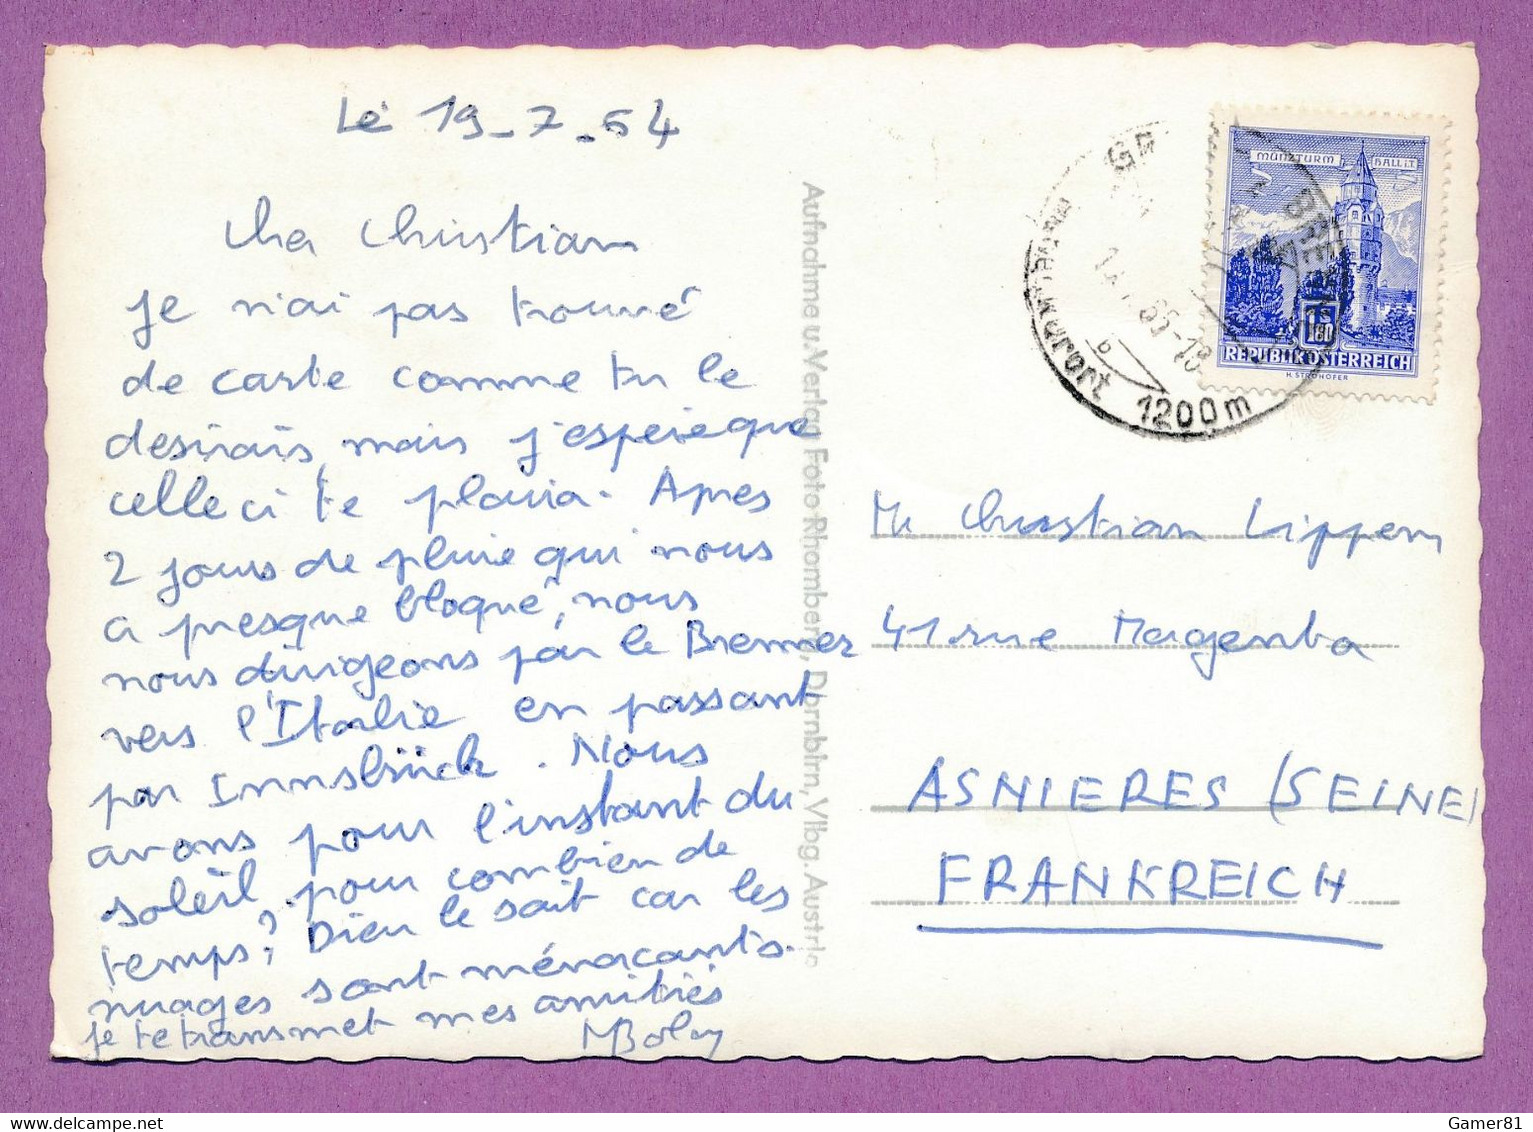 Le 19-7-64
Cher Christian
je n'ai pas trouvé
de carte comme tu le
desirais, mais j'espere que
celle ci te plaira. Apres
2 jours de pluie qui nous
a presque bloqué, nous
nous dirigeons par le Brenner
vers l'Italie en passant
par Innsbrück. Nous
avons pour l'instant du
soleil, pour combien de
temps? Dieu le sait car les
nuages sont ménacants.
je te transmet mes amitiés
MBolay
Aufnahme u. Verlag Foto Rhomberg, Dornbirn, Vlbg. Austria
1200 m
MÜNZTURM HALL i.T.
1 S 180
REPUBLIK ÖSTERREICH
H. STROHOFER
Mr Christian Lippens
41 rue Magenta
ASNIERES (SEINE)
FRANKREICH
Gamer81